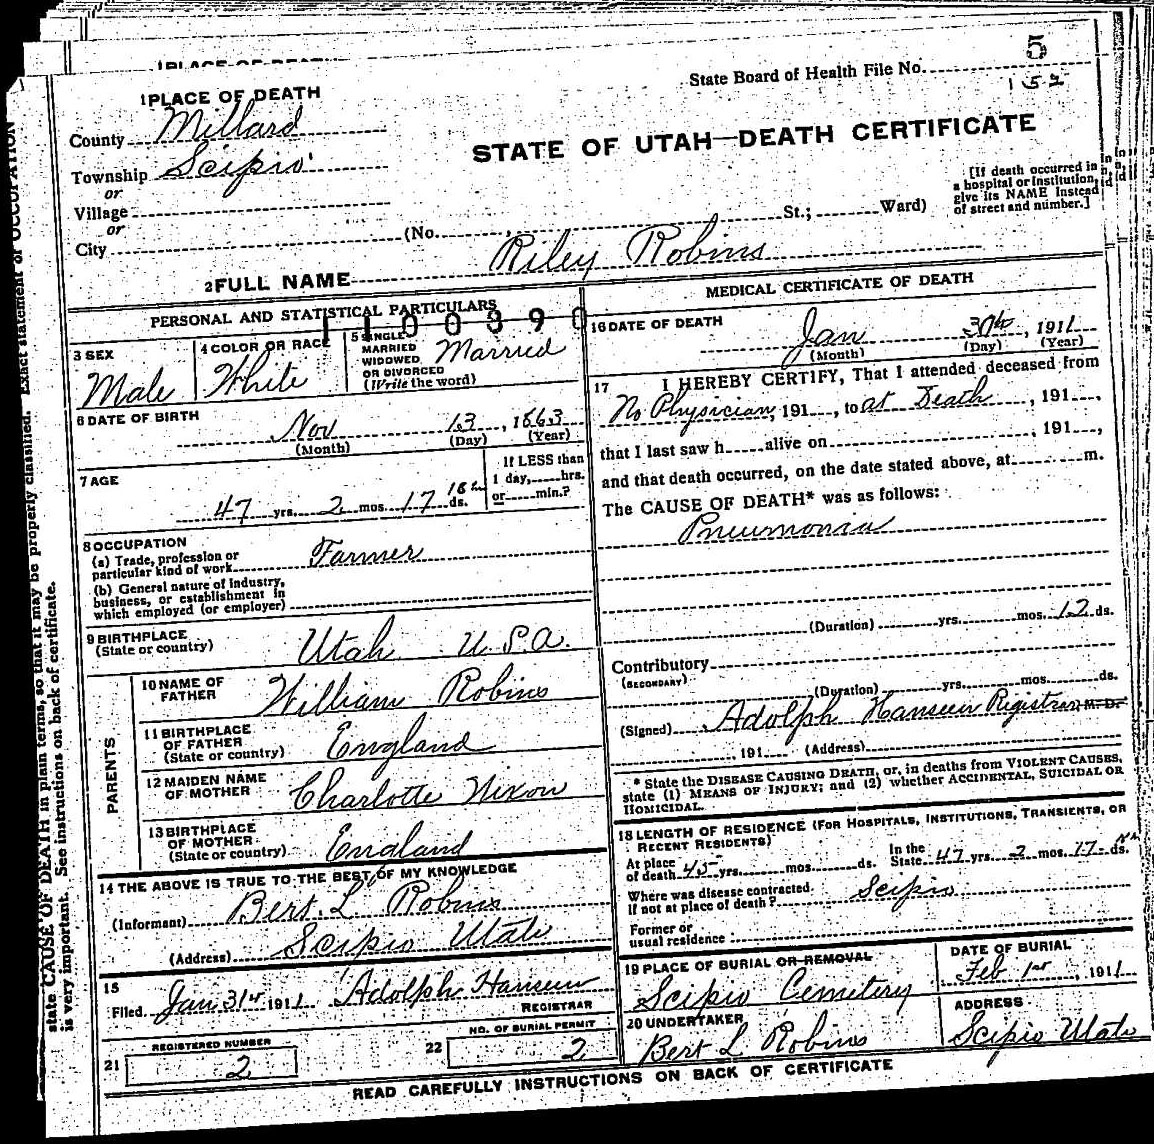 1 PLACE OF DEATH
State Board of Health File No. 5
152
County Millard
STATE OF UTAH—DEATH CERTIFICATE
Township Scipio
or
Village
or
City
(No. St.; Ward)
[If death occurred in
a hospital or institution,
give its NAME instead
of street and number.]
2 FULL NAME Riley Robins
PERSONAL AND STATISTICAL PARTICULARS
1100390
3 SEX
Male
4 COLOR OR RACE
White
5 SINGLE
MARRIED
WIDOWED
OR DIVORCED
(Write the word)
Married
6 DATE OF BIRTH
Nov 13, 1863
(Month) (Day) (Year)
7 AGE
47 yrs. 2 mos. 17 ds.
If LESS than
1 day, hrs.
or min.?
8 OCCUPATION
(a) Trade, profession or
particular kind of work Farmer
(b) General nature of industry,
business, or establishment in
which employed (or employer)
9 BIRTHPLACE
(State or country) Utah U.S.A.
PARENTS
10 NAME OF
FATHER William Robins
11 BIRTHPLACE
OF FATHER
(State or country) England
12 MAIDEN NAME
OF MOTHER Charlotte Nixon
13 BIRTHPLACE
OF MOTHER
(State or country) England
14 THE ABOVE IS TRUE TO THE BEST OF MY KNOWLEDGE
(Informant) Bert. L Robins
(Address) Scipio Utah
15
Filed Jan 31st 1911 Adolph Hanseen
REGISTRAR
REGISTERED NUMBER
21 2
NO. OF BURIAL PERMIT
22 2
MEDICAL CERTIFICATE OF DEATH
16 DATE OF DEATH
Jan 30th, 1911
(Month) (Day) (Year)
17 I HEREBY CERTIFY, That I attended deceased from
No Physician, 191, to at Death, 191,
that I last saw h alive on , 191,
and that death occurred, on the date stated above, at m.
The CAUSE OF DEATH* was as follows:
Pneumonia
(Duration) yrs. mos. 12 ds.
Contributory
(SECONDARY)
(Duration) yrs. mos. ds.
(Signed) Adolph Hanseen Registrar M. D.
, 191 (Address)
* State the DISEASE CAUSING DEATH, or, in deaths from VIOLENT CAUSES,
state (1) MEANS OF INJURY; and (2) whether ACCIDENTAL, SUICIDAL OR
HOMICIDAL.
18 LENGTH OF RESIDENCE (FOR HOSPITALS, INSTITUTIONS, TRANSIENTS, OR
RECENT RESIDENTS)
At place
of death 45 yrs. mos. ds.
In the
State 47 yrs. 2 mos. 17 ds.
Where was disease contracted
if not at place of death? Scipio
Former or
usual residence
19 PLACE OF BURIAL OR REMOVAL
Scipio Cemetery
DATE OF BURIAL
Feb 1st, 1911
20 UNDERTAKER
Bert L Robins
ADDRESS
Scipio Utah
READ CAREFULLY INSTRUCTIONS ON BACK OF CERTIFICATE
state CAUSE OF DEATH in plain terms, so that it may be properly classified. Exact statement of OCCUPATION
is very important. See instructions on back of certificate.